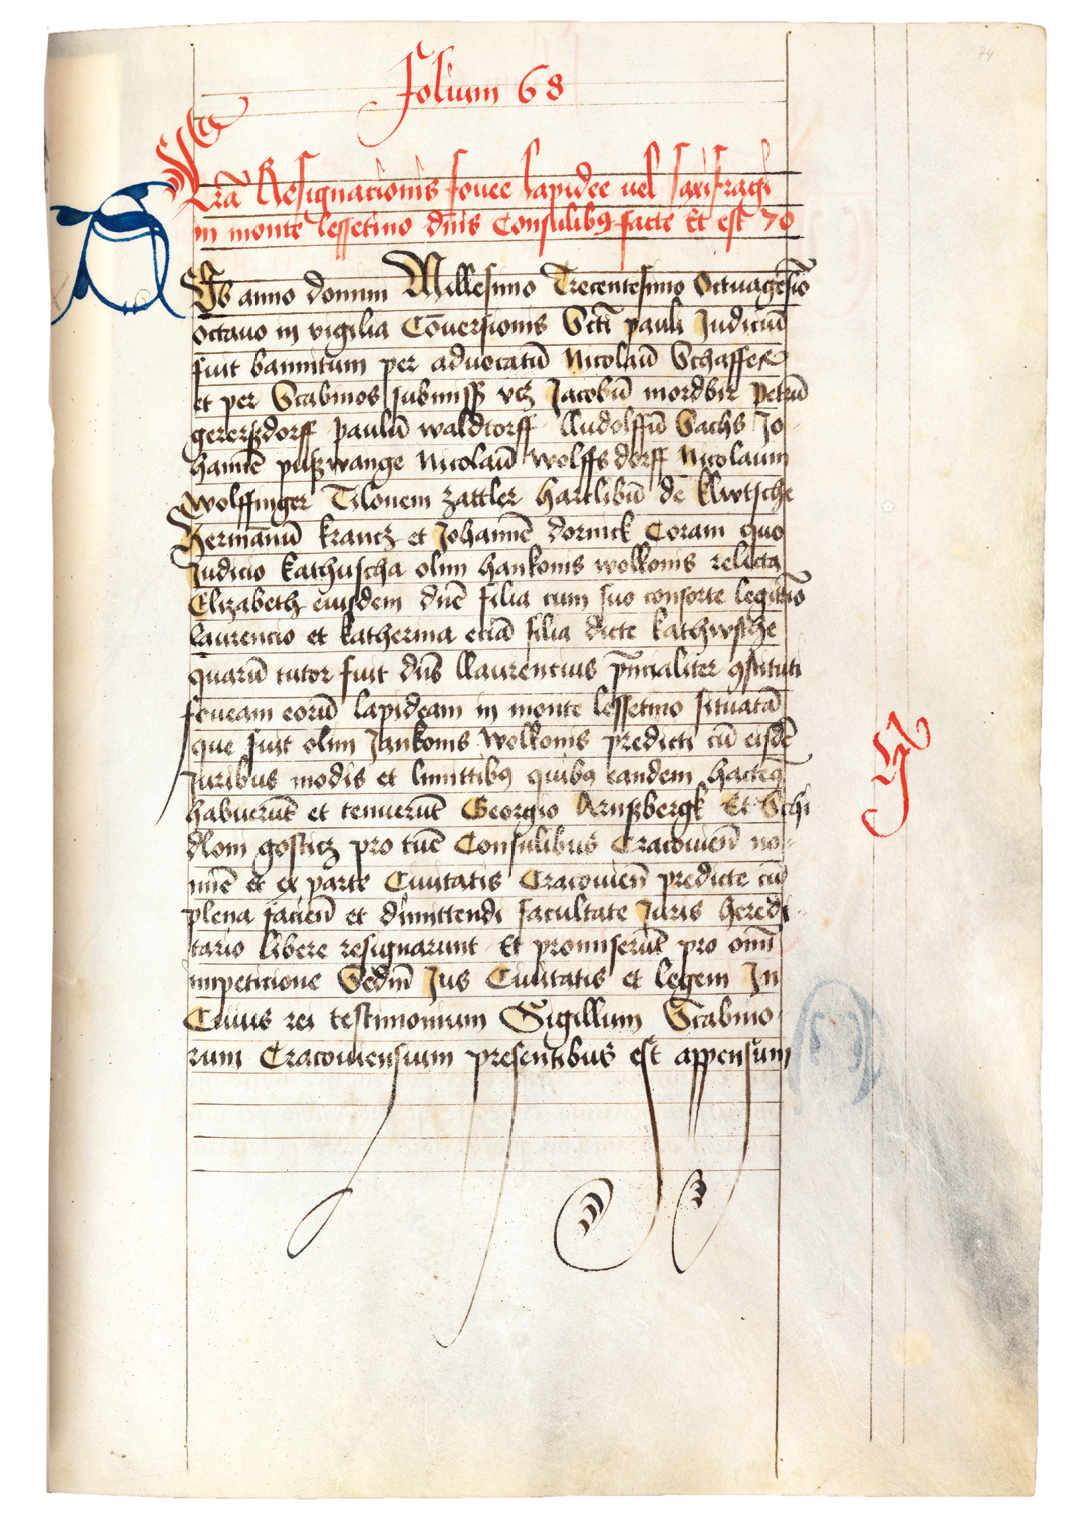 Folium 68
Lrã Resignacionis fouee lapidee uel saxifragi
in monte lessetino dñis Consulibꝯ facte Et est 70
Sb anno domini Millesimo Trecentesimo Octuagesio
octauo in vigilia Cõuersionis Scti pauli Judiciũ
fuit bannitum per aduocatũ Nicolaũ Schaffer
et per Scabinos submiss Jacobũ mordbir Petrũ
gererßdorff paulũ waldtorff Rudolffũ Sachs Jo
hannẽ pußwange Nicolaũ wolffsdorff Nicolaum
wolffinger Tilonem zattler hartlibũ de Klwtsche
hermanũ krancz et Johannẽ dornick Coram quo
Judicio kathuscha olim hankonis wolkonis relicta
Elizabeth eiusdem dñe filia cum suo consorte legittĩo
laurencio et katherina eciã filia dicte kathwsche
quarũ tutor fuit dñs llaurencius pñcialiter ꝯstituti
foueam eorũ lapideam in monte lessetino situatã
que fuit olim Jankonis Wolkonis predicti cũ eisdẽ
Juribus modis et limittibꝯ quibꝯ eandem hacteꝯ
habuerũt et tenuerũt Georgio Arnßbergk Et Schi
dlom gosticz pro tũc Consulibus Cracouieñ no-
mĩe et ex parte Ciuitatis Cracouieñ predicte cũ
plena facieñ et dimittendi facultate Juris heredi-
tario libere resignarunt Et promiserũt pro omĩ
impeticione Sedm̃ Jus Ciuitatis et legem In
Cuius rei testimonium Sigillum Scabino
rum Cracouiensium presentibus est appensum